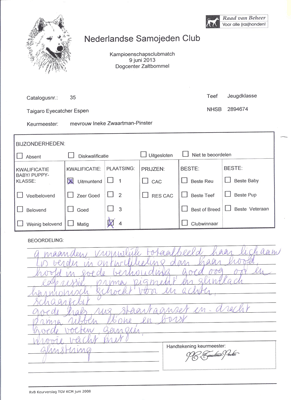 Raad van Beheer
Voor alle (ras)honden
Nederlandse Samojeden Club
Kampioenschapsclubmatch
9 juni 2013
Dogcenter Zaltbommel
Catalogusnr.: 35 Teef Jeugdklasse
Targaro Eyecatcher Espen NHSB 2894674
Keurmeester: mevrouw Ineke Zwaartman-Pinster
BIJZONDERHEDEN:
Absent Diskwalificatie Uitgesloten Niet te beoordelen
KWALIFICATIE BABY/PUPPY-KLASSE: KWALIFICATIE: PLAATSING: PRIJZEN: BESTE: BESTE:
Uitmuntend 1 CAC Beste Reu Beste Baby
Veelbelovend Zeer Goed 2 RES CAC Beste Teef Beste Pup
Belovend Goed 3 Best of Breed Beste Veteraan
Weinig belovend Matig 4 Clubwinnaar
BEOORDELING:
9 maanden vrouwelijk totaalbeeld haar lichaam
is verder in ontwikkeling dan haar hoofd
hoofd in goede verhouding, goed oog, op en
prima pigment en
harmonisch gehoekt voor en achter
schaargebit
goede hals rug staartaanzet en dracht
prima ribben en borst
goede voeten gangen
mooie vacht met
glinstering
Handtekening keurmeester:
RvB Keurverslag TGV ACR juni 2008